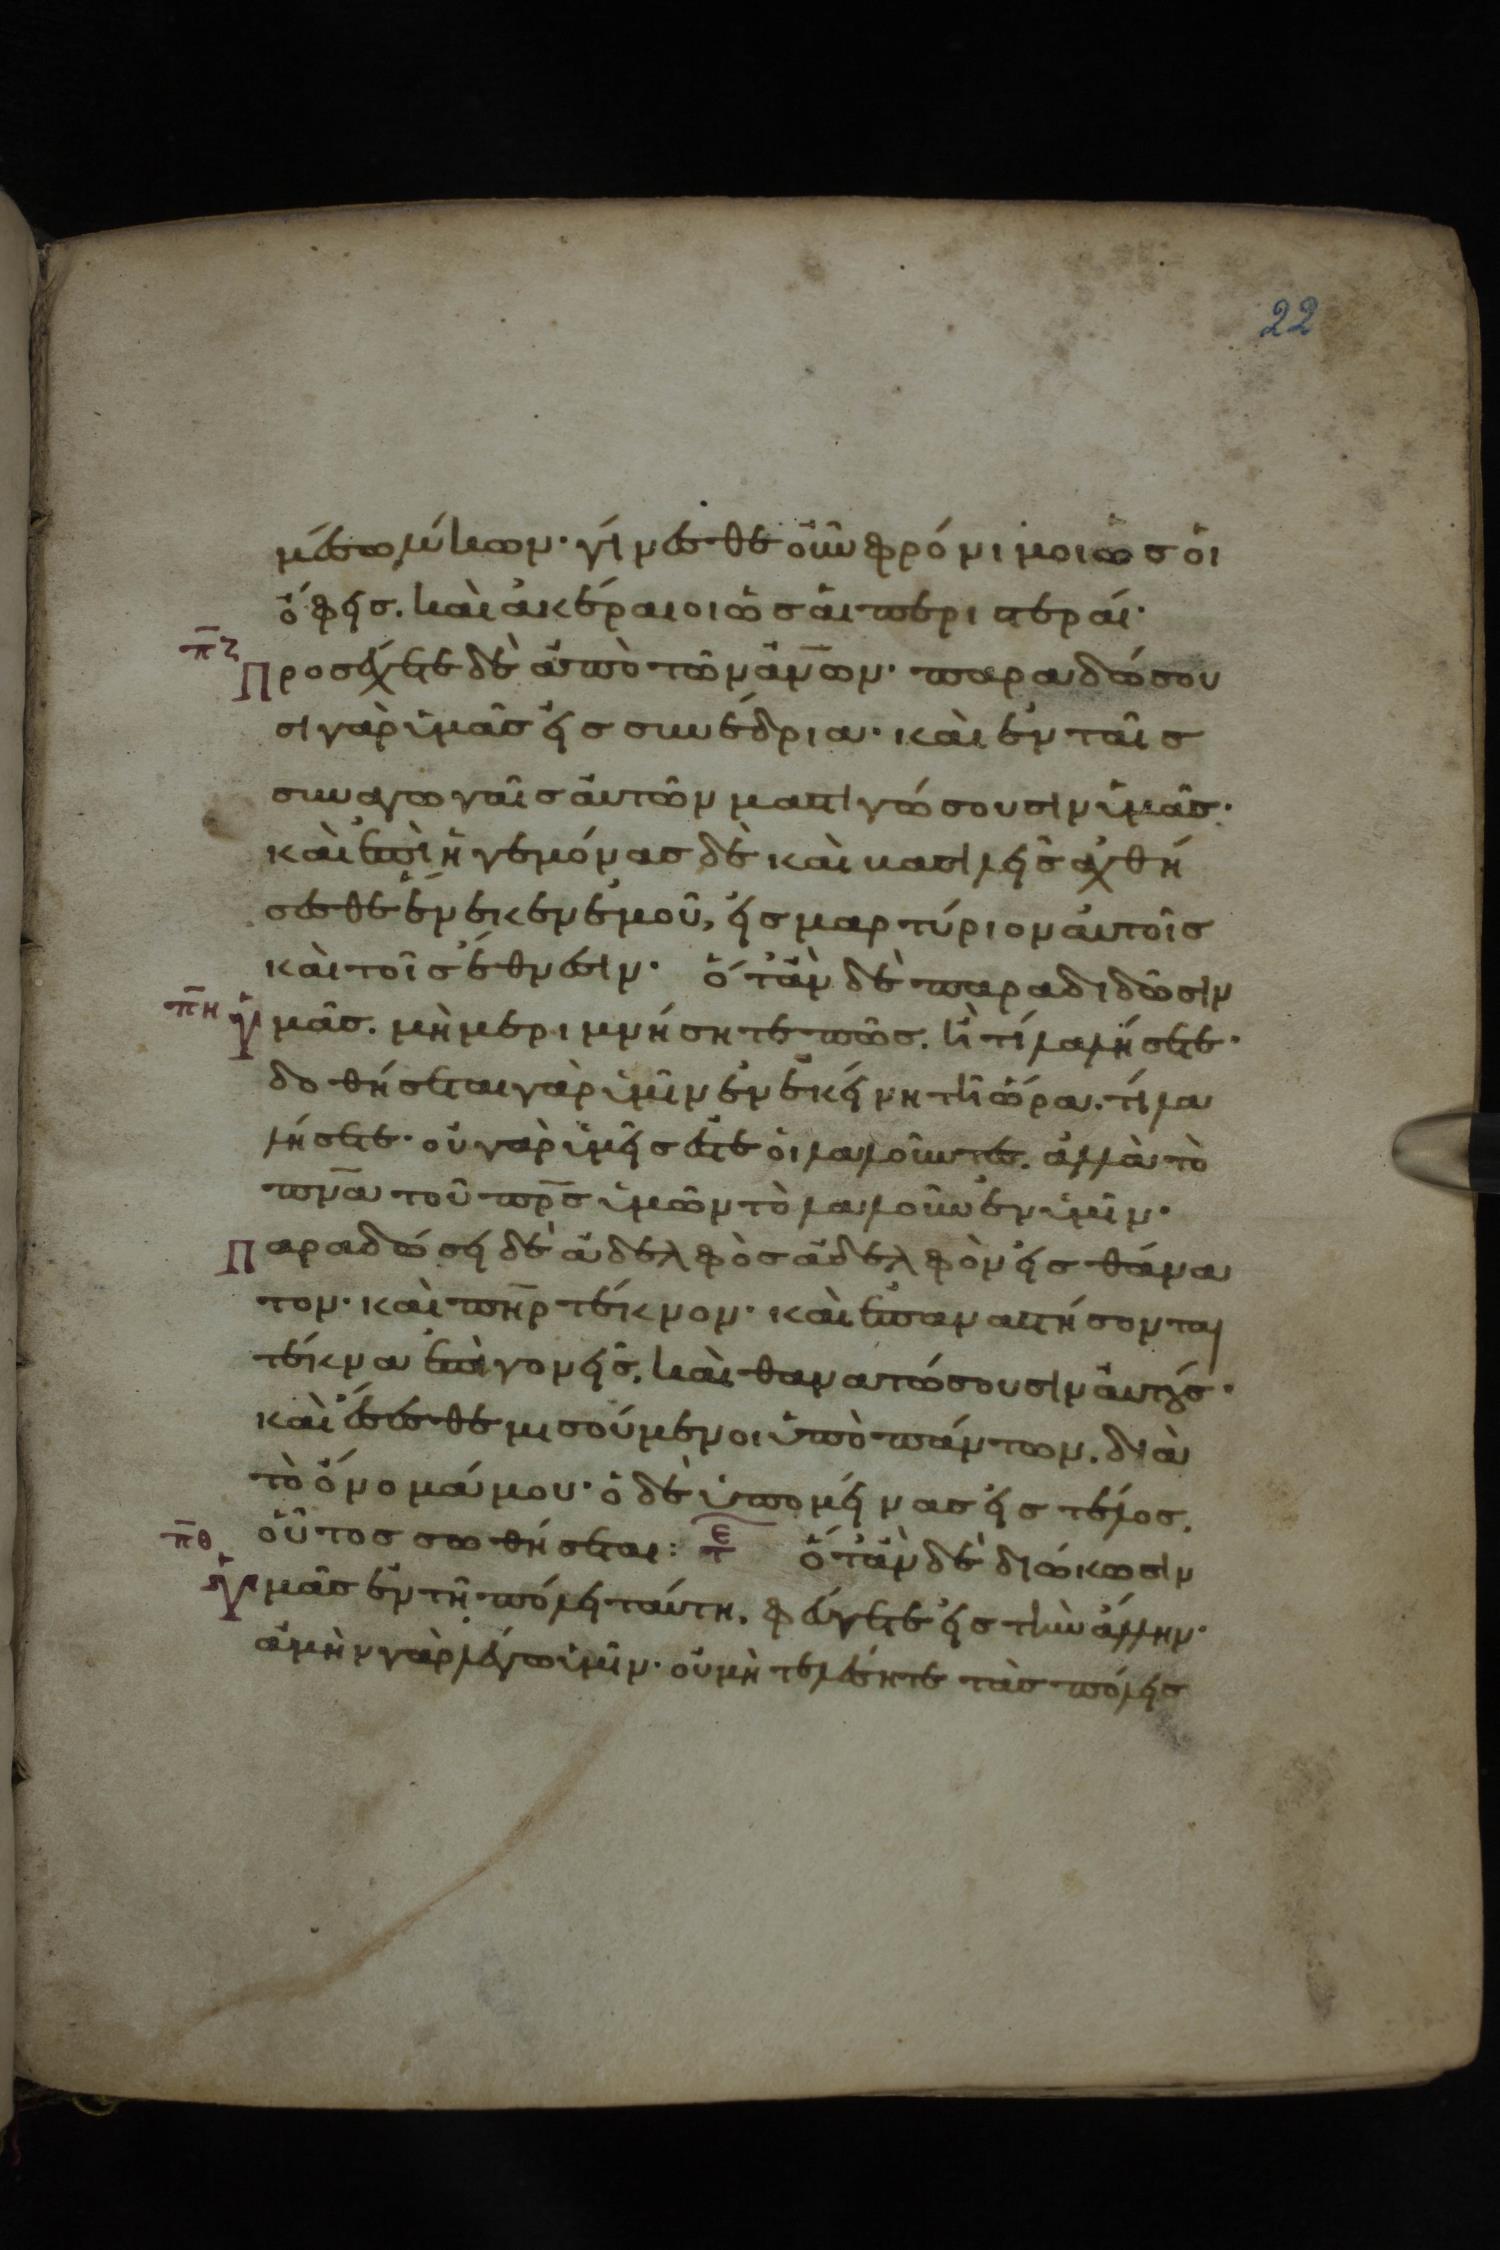 22
μέσω λύκων· γίνεσθε οὖν φρόνιμοι ὡς οἱ
ὄφεις. καὶ ἀκέραιοι ὡς αἱ περιστεραί·
π̅ζ
Προσέχετε δὲ ἀπὸ τῶν ἀν̅ων· παραδώσου
σι γὰρ ὑμᾶς εἰς συνέδρια· καὶ ἐν ταῖς
συναγωγαῖς αὐτῶν μαστιγώσουσιν ὑμᾶς·
καὶ ἐπὶ ἡγεμόνας δὲ καὶ βασιλεῖς ἀχθή
σεσθε ἕνεκεν ἐμοῦ, εἰς μαρτύριον αὐτοῖς
καὶ τοῖς ἔθνεσιν· ὅταν δὲ παραδιδῶσιν
π̅η
ὑμᾶς. μὴ μεριμνήσητε πῶς. ἢ τί λαλήσετε·
δοθήσεται γὰρ ὑμῖν ἐν ἐκείνη τῆ ὥρα. τί λα
λήσετε· οὐ γὰρ ὑμεῖς ἐστε οἱ λαλοῦντες. ἀλλὰ τὸ
πν̅α τοῦ πρ̅ς ὑμῶν τὸ λαλοῦν ἐν ὑμῖν·
Παραδώσει δὲ ἀδελφὸς ἀδελφὸν εἰς θάνα
τον· καὶ πη̅ρ τέκνον· καὶ ἐπαναστήσονται
τέκνα ἐπὶ γονεῖς. καὶ θανατώσουσιν αὐτούς·
καὶ ἔσεσθε μισούμενοι ὑπὸ πάντων. διὰ
τὸ ὄνομά μου· ὁ δὲ ὑπομείνας εἰς τέλος.
οὗτος σωθήσεται: τε ὅταν δὲ διώκωσιν
π̅θ
ὑμᾶς ἐν τῆ πόλει ταύτη. φεύγετε εἰς τὴν ἄλλην·
ἀμὴν γὰρ λέγω ὑμῖν· οὐ μὴ τελέσητε τὰς πόλεις